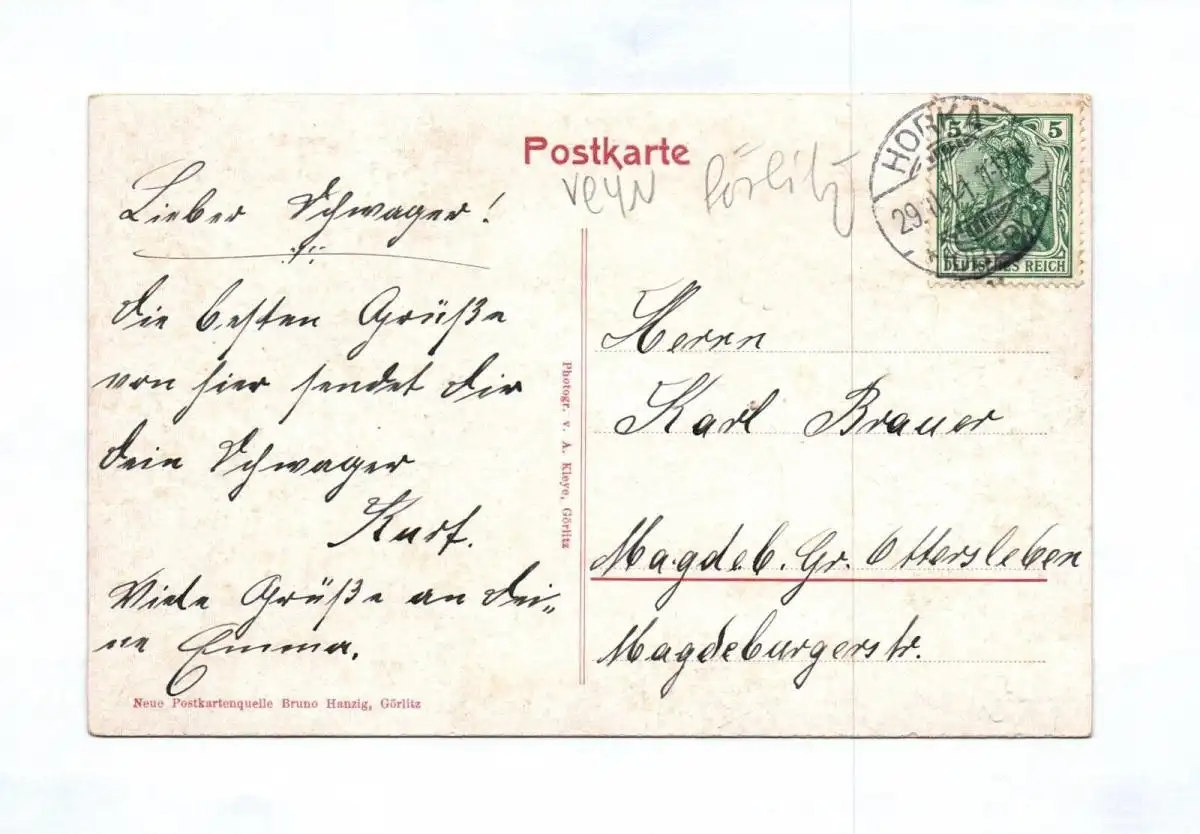 Postkarte
Görlitz
HORKA
5 5
DEUTSCHES REICH
Lieber Schwager!
Die besten Grüße
von hier sendet Dir
dein Schwager
Kurt.
Viele Grüße an Dei-
ne Emma.
Neue Postkartenquelle Bruno Hanzig, Görlitz
Photogr. v. A. Kleye, Görlitz
Herrn
Karl Brauer
Magdeb. Gr. Ottersleben
Magdeburgerstr.